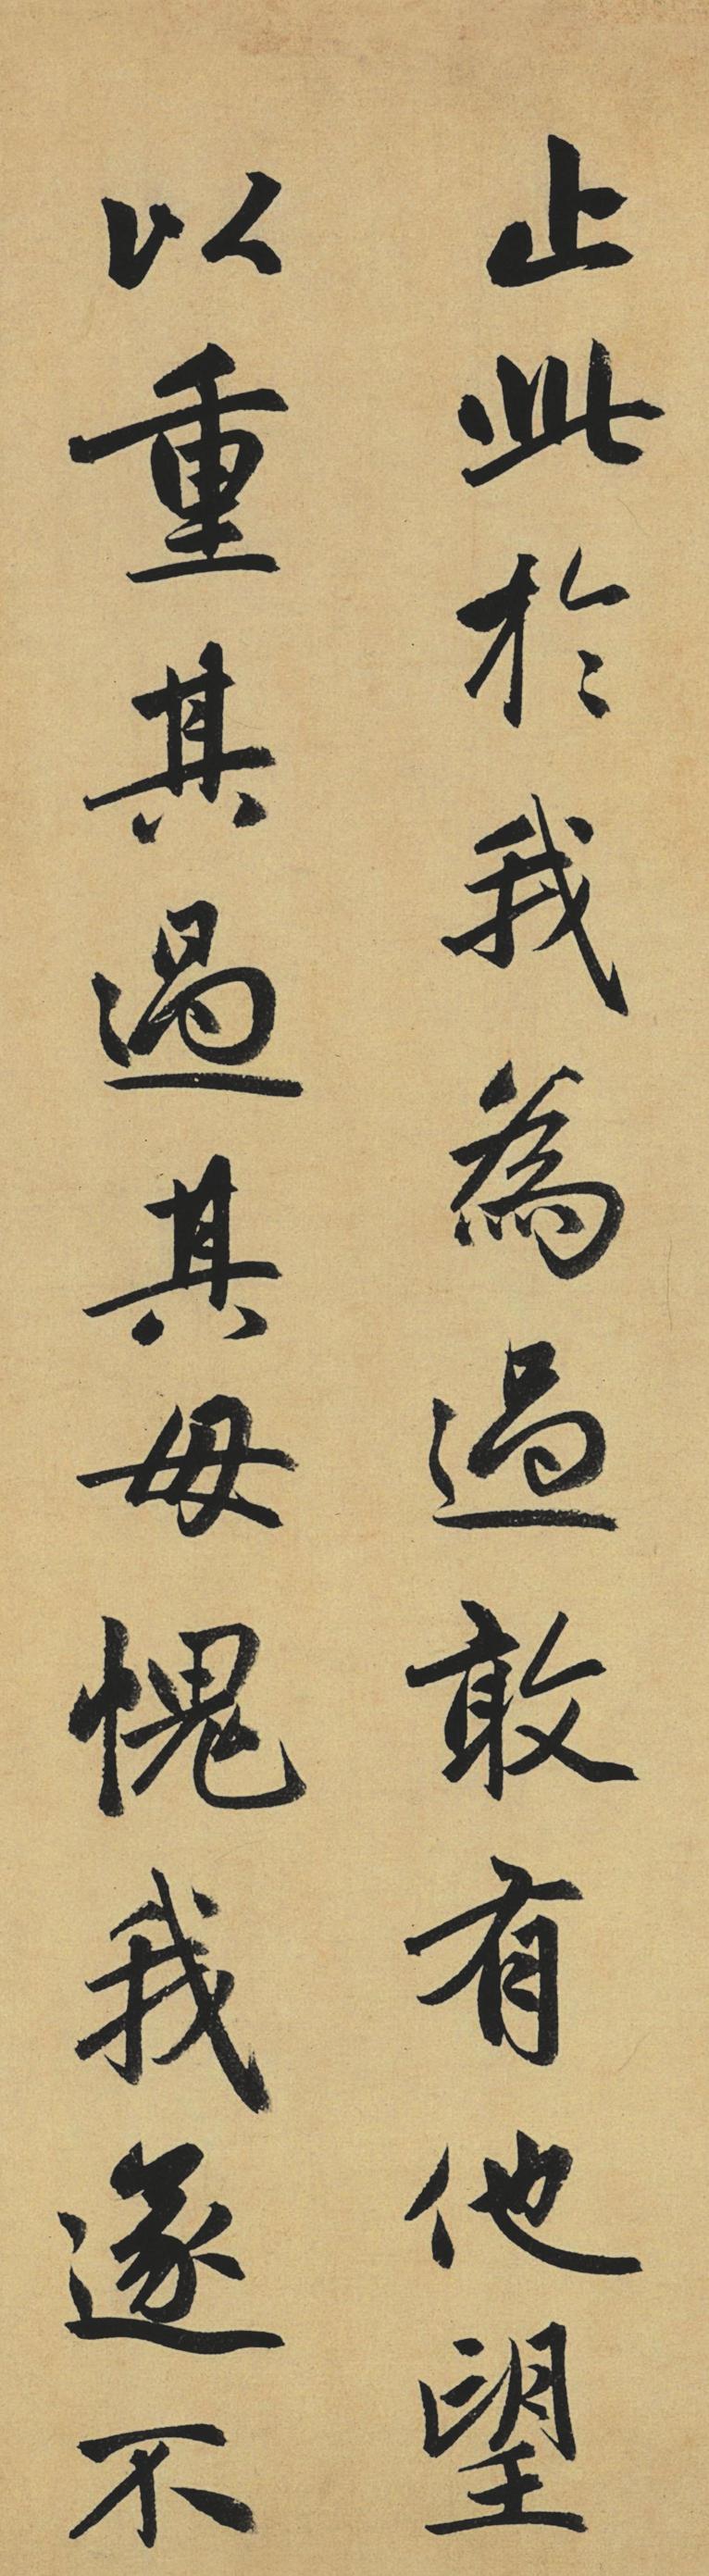 止此於我為過敢有他望
以重其過其毋愧我遂不